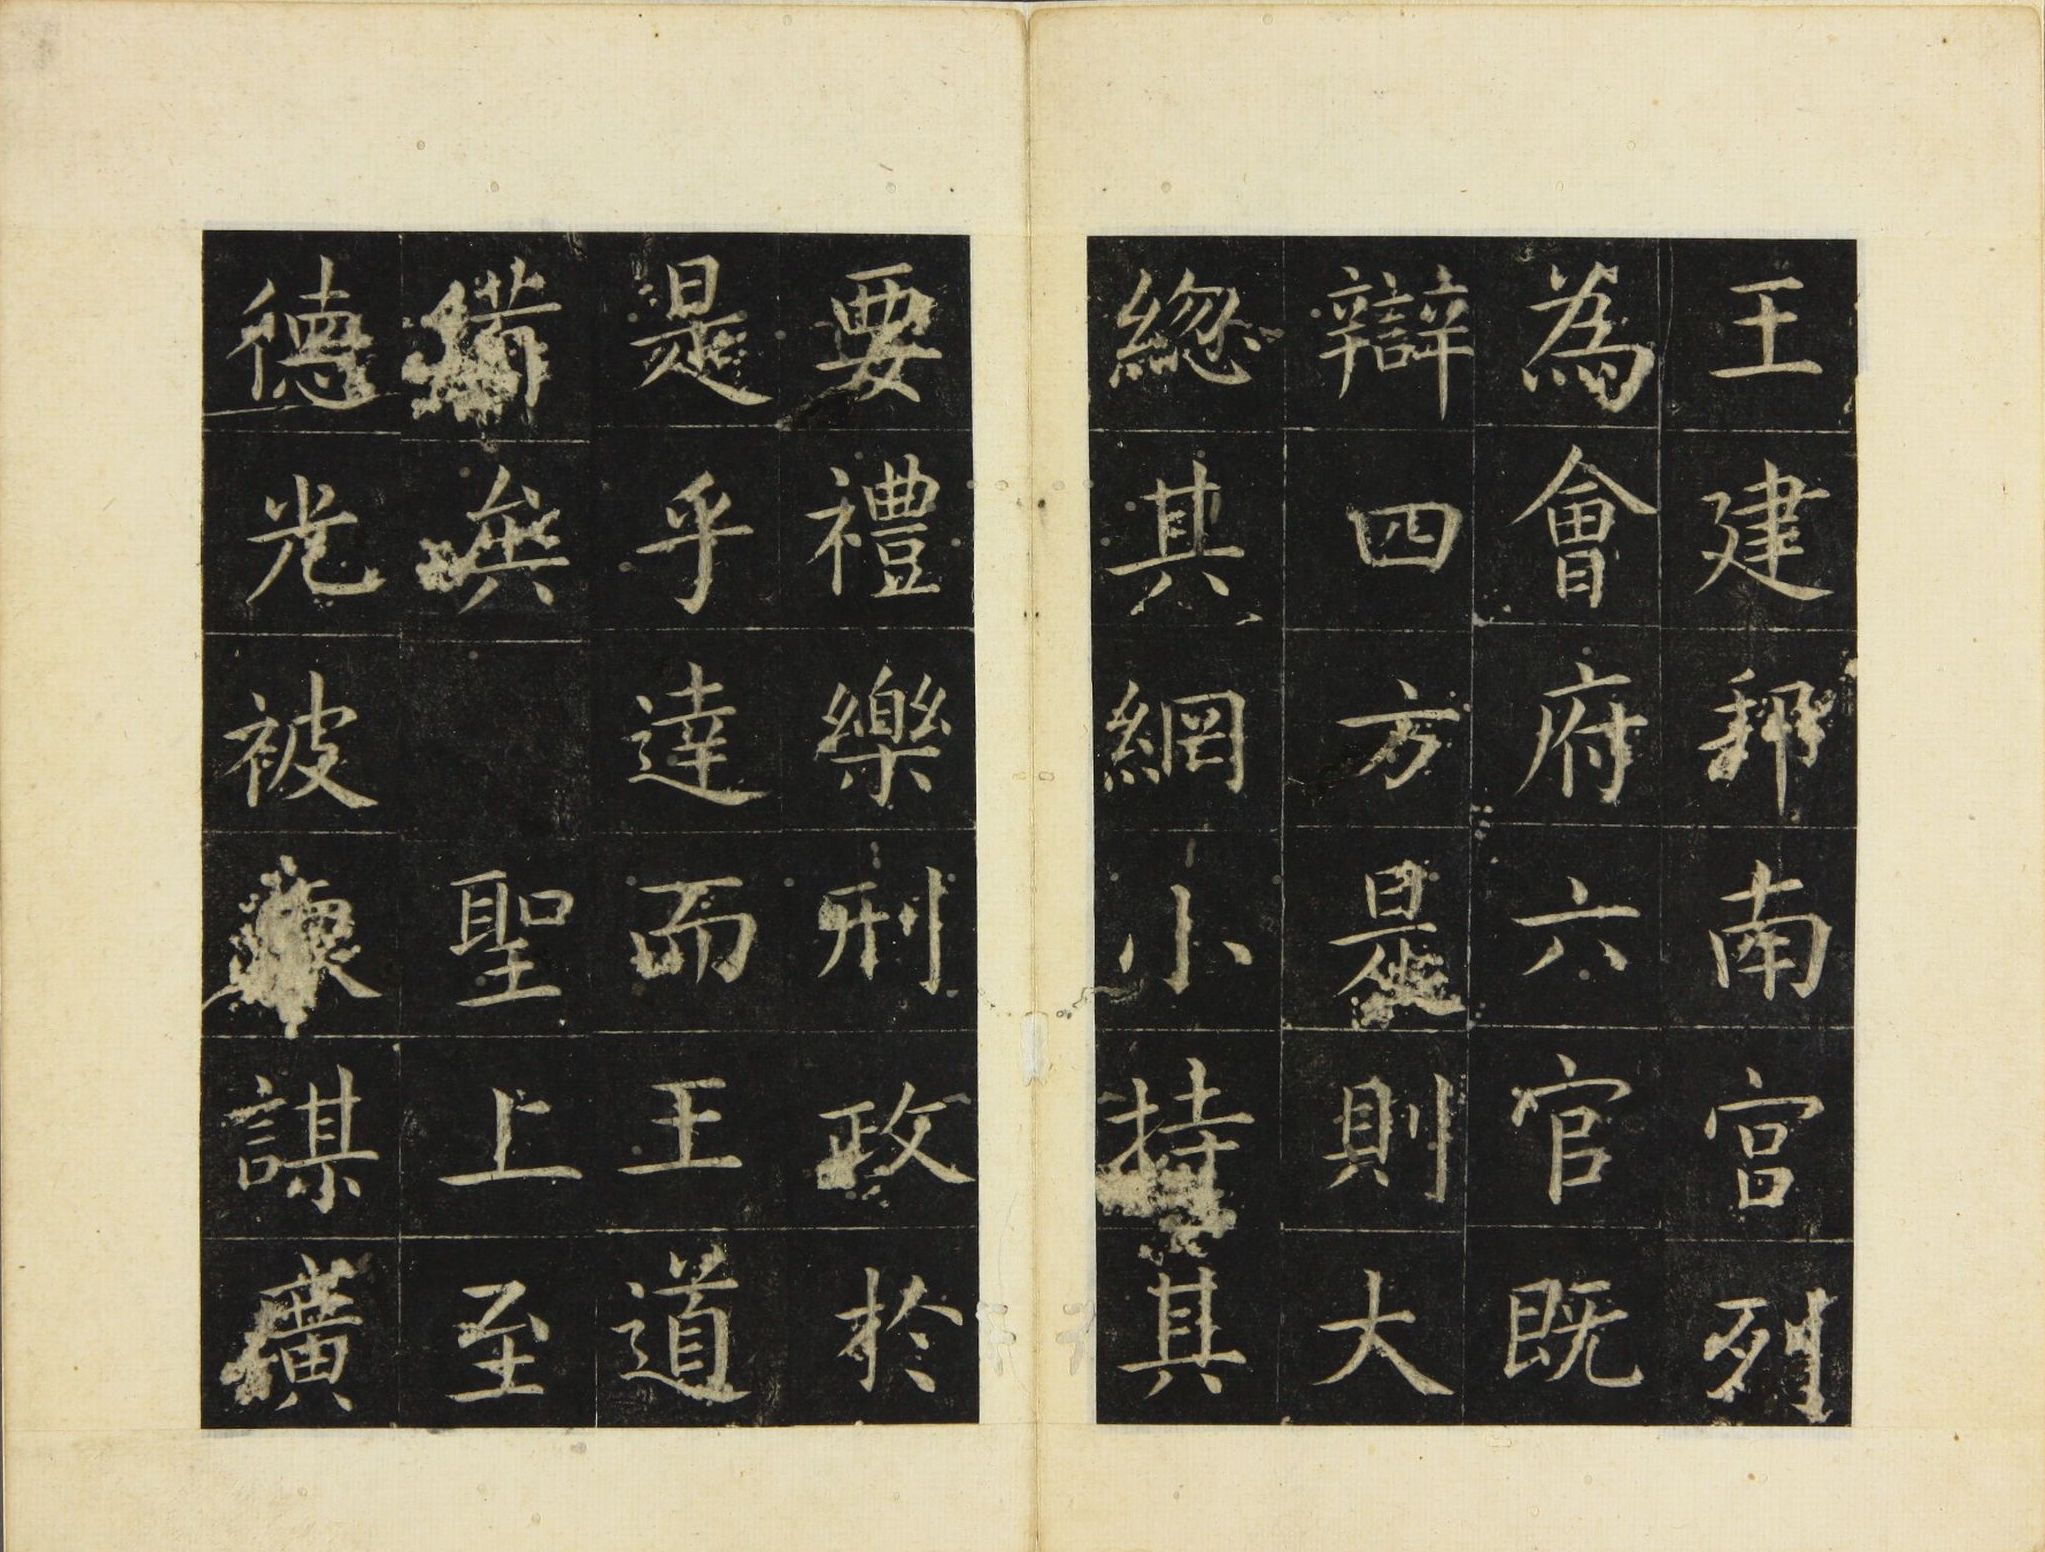 王建邦南宫列
為會府六官既
辯四方是則大
緫其綱小持其
要禮樂刑政於
是乎達而王道
備矣聖上至
德光被 謀廣